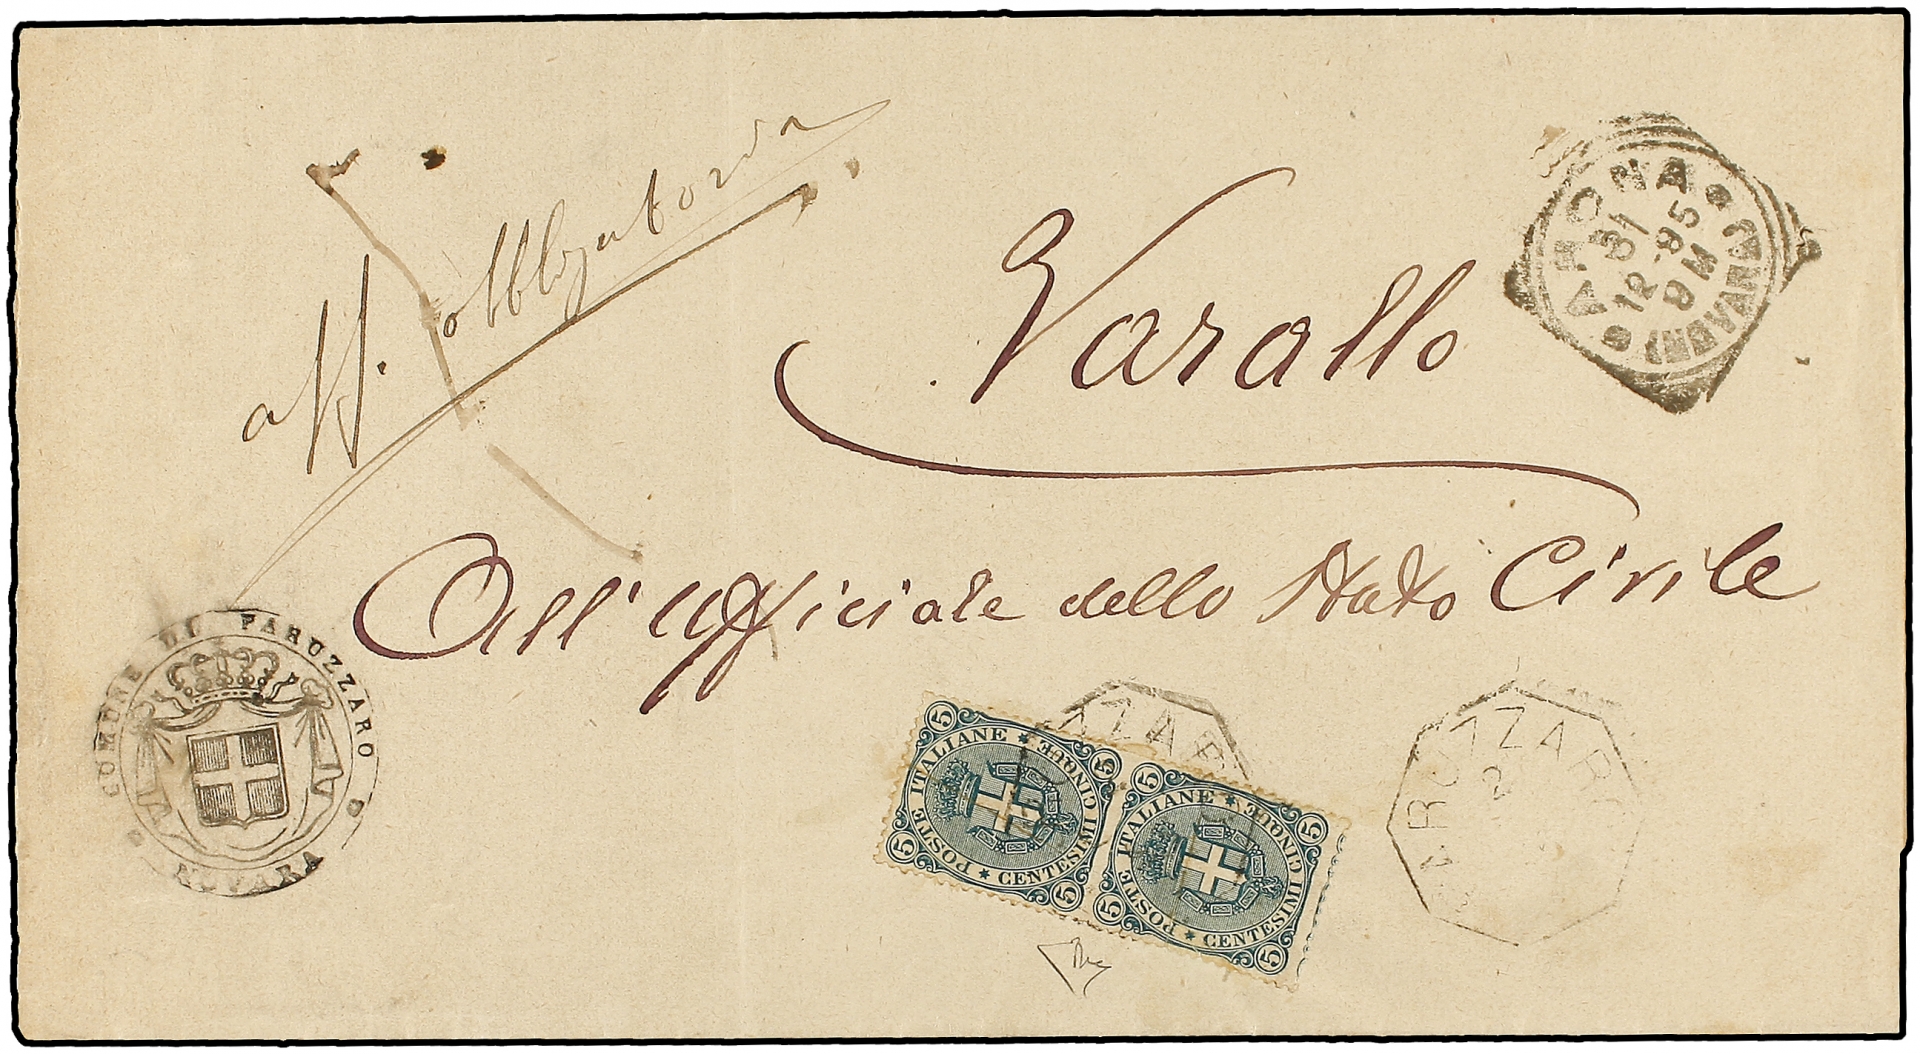 aff. obbligatoria
Varallo
All'Ufficiale dello Stato Civile
ARONA
(NOVARA)
31
12-95
9M
COMUNE DI PARUZZARO
NOVARA
5 5 5 5
POSTE ITALIANE * CINQUE CENTESIMI *
5 5 5 5
POSTE ITALIANE * CINQUE CENTESIMI *